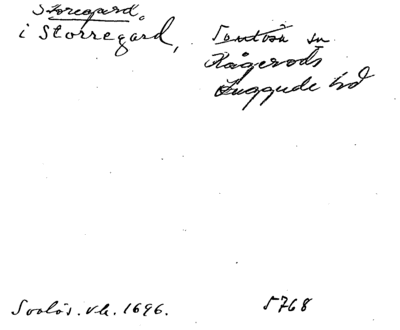 Storegard.
i Storregard, Tentvår sn
Kågeröds
Luggude hd
Svalös. vk. 1696. 5768